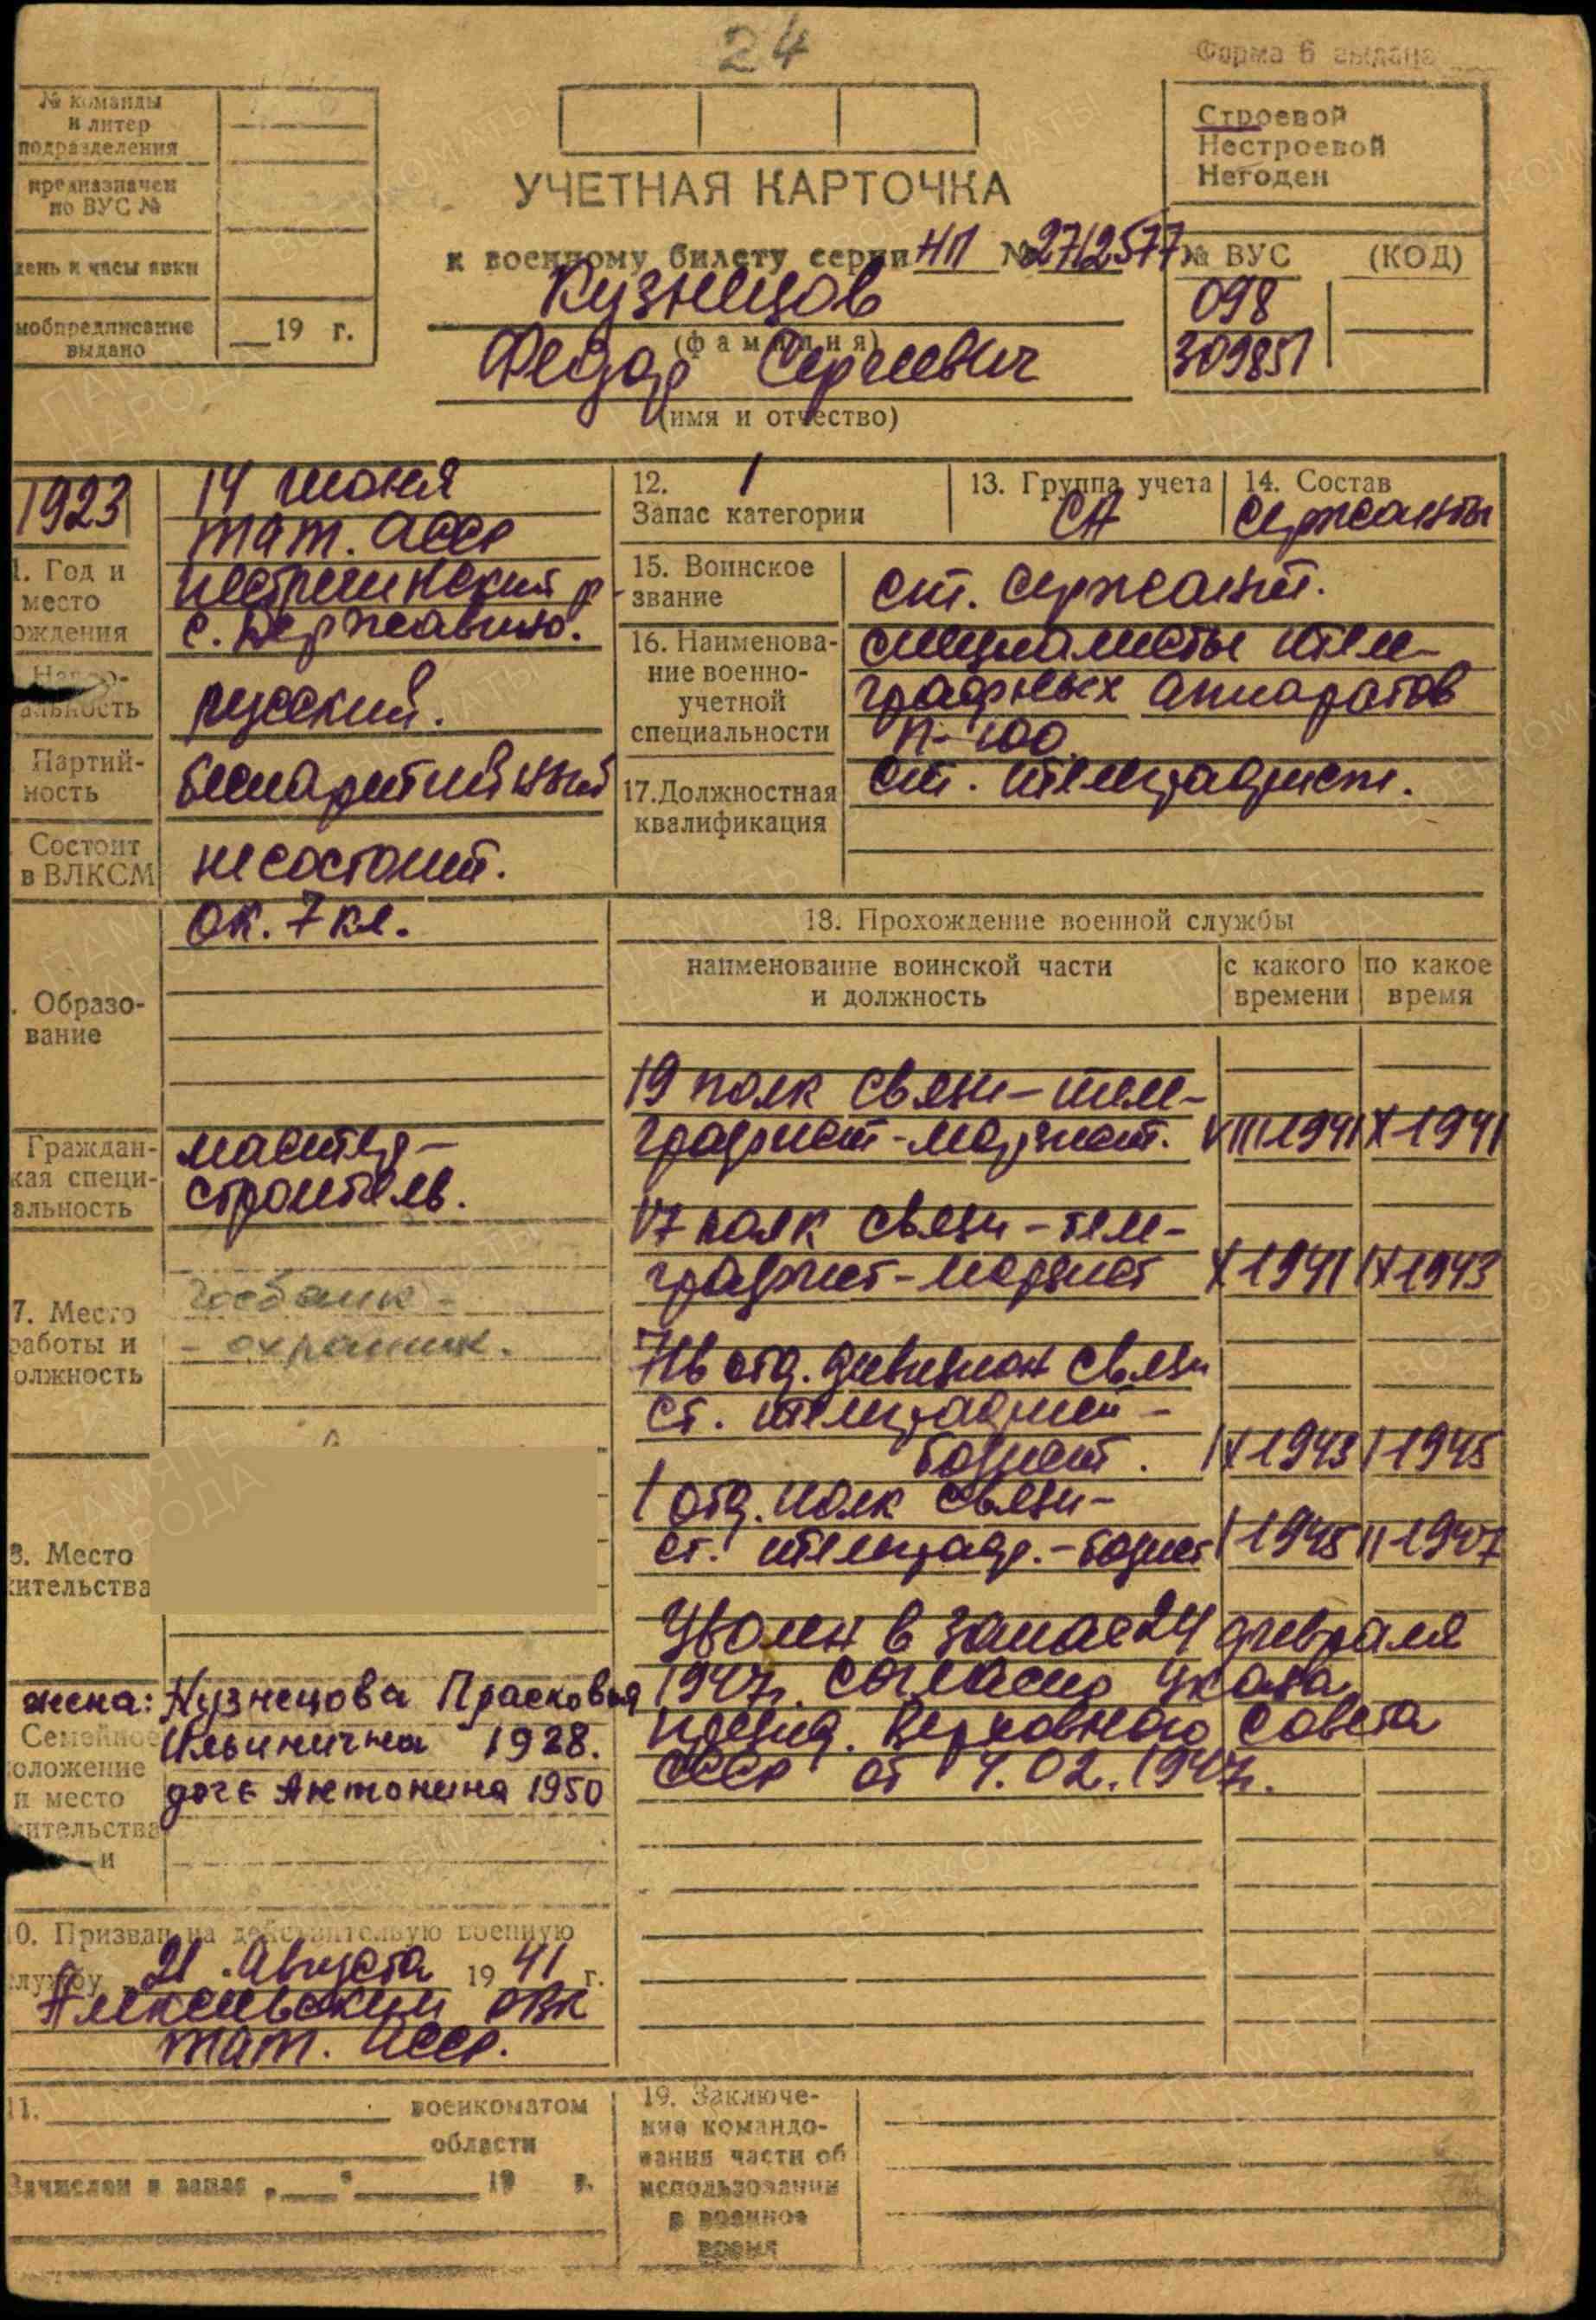 24
Форма 6 выдана
№ команды
и литер
подразделения
предназначен
по ВУС №
день и часы явки
мобпредписание
выдано
19 г.
УЧЕТНАЯ КАРТОЧКА
к военному билету серии НП № 2712577
Кузнецов
(фамилия)
Федор Сергеевич
(имя и отчество)
Строевой
Нестроевой
Негоден
№ ВУС (КОД)
098
309851
1923
1. Год и
место
рождения
14 июня
тат. АССР
Пестречинский р-
с. Державино.
Нацио-
альность
русский.
Партий-
ность
беспартийный
Состоит
в ВЛКСМ
не состоит.
. Образо-
вание
ок. 7 кл.
Граждан-
кая специ-
альность
мастер-
строитель.
7. Место
работы и
должность
Госбанк -
- охранник.
8. Место
жительства
жена: Кузнецова Прасковья
Ильинична 1928.
дочь Антонина 1950
Семейное
положение
и место
жительства
и
10. Призван на действительную военную
службу 21 Августа 1941 г.
Алексеевским ОВК
тат. АССР.
11. военкоматом
области
Зачислен в запас „ " 19 г.
12. 1
Запас категории
13. Группа учета
СА
14. Состав
сержанты
15. Воинское
звание
ст. сержант.
16. Наименова-
ние военно-
учетной
специальности
специалисты теле-
графных аппаратов
П-100
17. Должностная
квалификация
ст. телеграфист.
18. Прохождение военной службы
наименование воинской части
и должность
с какого
времени
по какое
время
19 полк связи - теле-
графист - морзист. VIII 1941 X 1941
17 полк связи - теле-
графист - морзист X 1941 IX 1943
716 отд. дивизион связи
ст. телеграфист -
бодист. IX 1943 I 1945
1 отд. полк связи -
ст. телеграф. - бодист I 1945 II 1947
Уволен в запас 24 февраля
1947г. согласно указа
презид. Верховного Совета
СССР от 4.02.1947г.
19. Заключе-
ние командо-
вания части об
использовании
в военное
время
ПАМЯТЬ
НАРОДА
ВОЕНКОМАТЫ